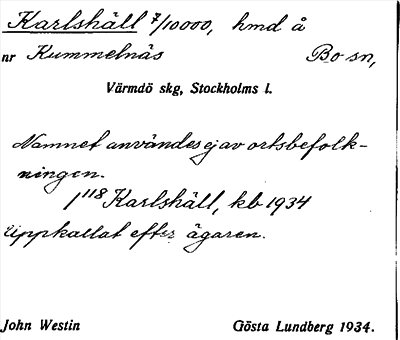 Karlshäll 7/10000, hmd å
nr Kummelnäs Bo sn,
Värmdö skg, Stockholms l.
Namnet användes ej av ortsbefolk-
ningen.
1¹¹⁸ Karlshäll, kb 1934
Uppkallat efter ägaren.
John Westin Gösta Lundberg 1934.